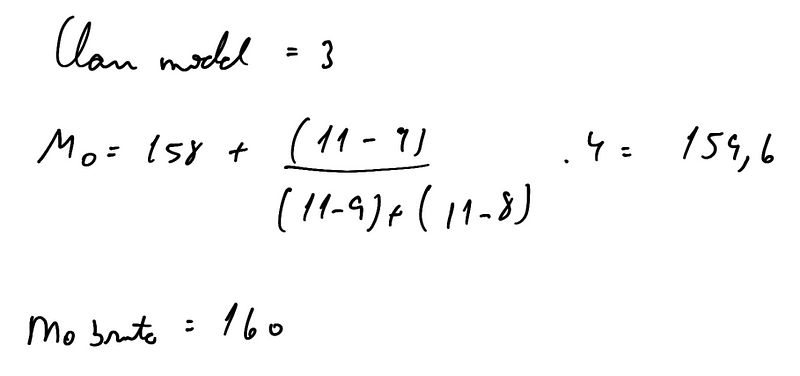 Clan modal = 3
Mo = 158 + (11 - 9) / (11-9)+(11-8) . 4 = 159,6
Mo bruta = 160